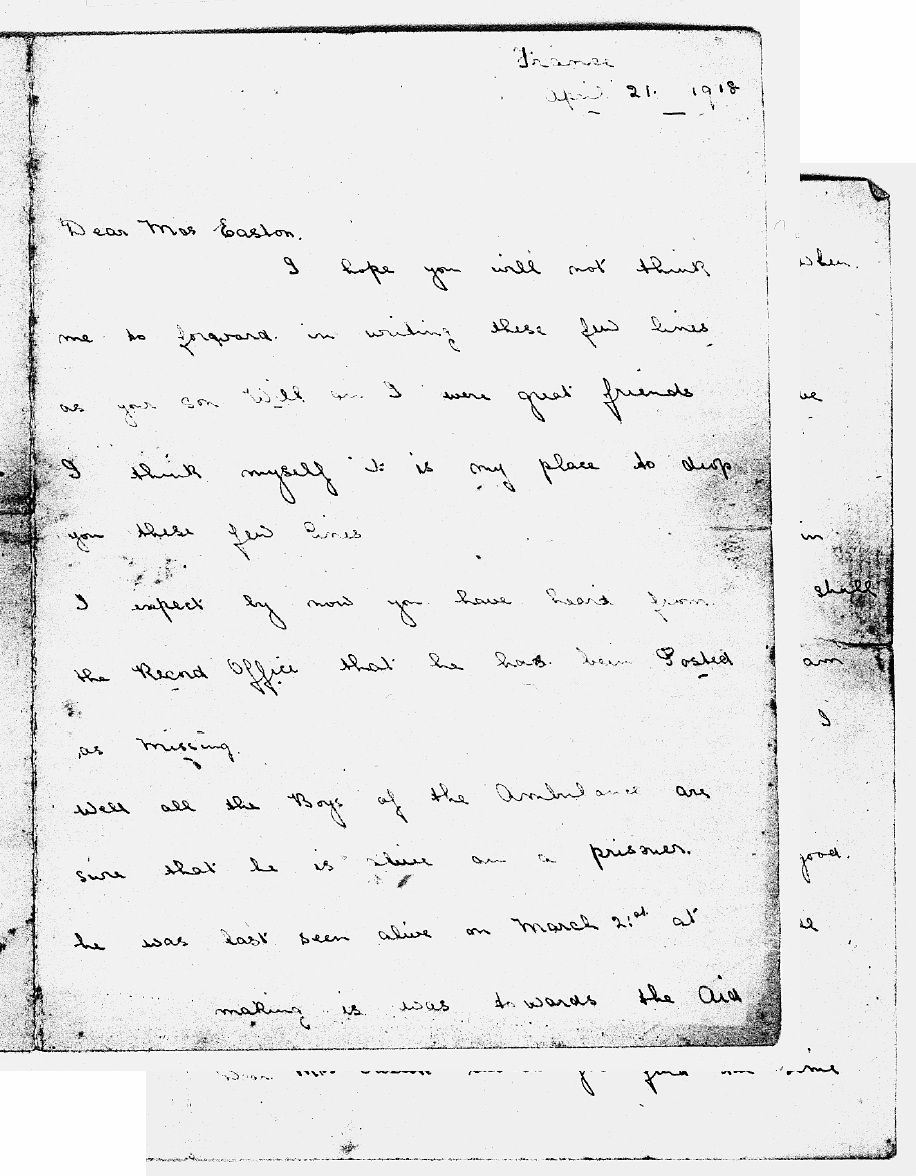 France
April 21. 1918
Dear Mrs Easton.
I hope you will not think
me to forward. in writing these few lines
as your son Will an I were great friends
I think myself it is my place to drop
you these few lines
I expect by now you have heard from
the Record Office that he has been Posted
as Missing.
Well all the Boys of the Ambulance are
sure that he is alive an a prisoner.
he was last seen alive on March 21st at
making is was towards the Aid
when
in
shall
am
I
good.